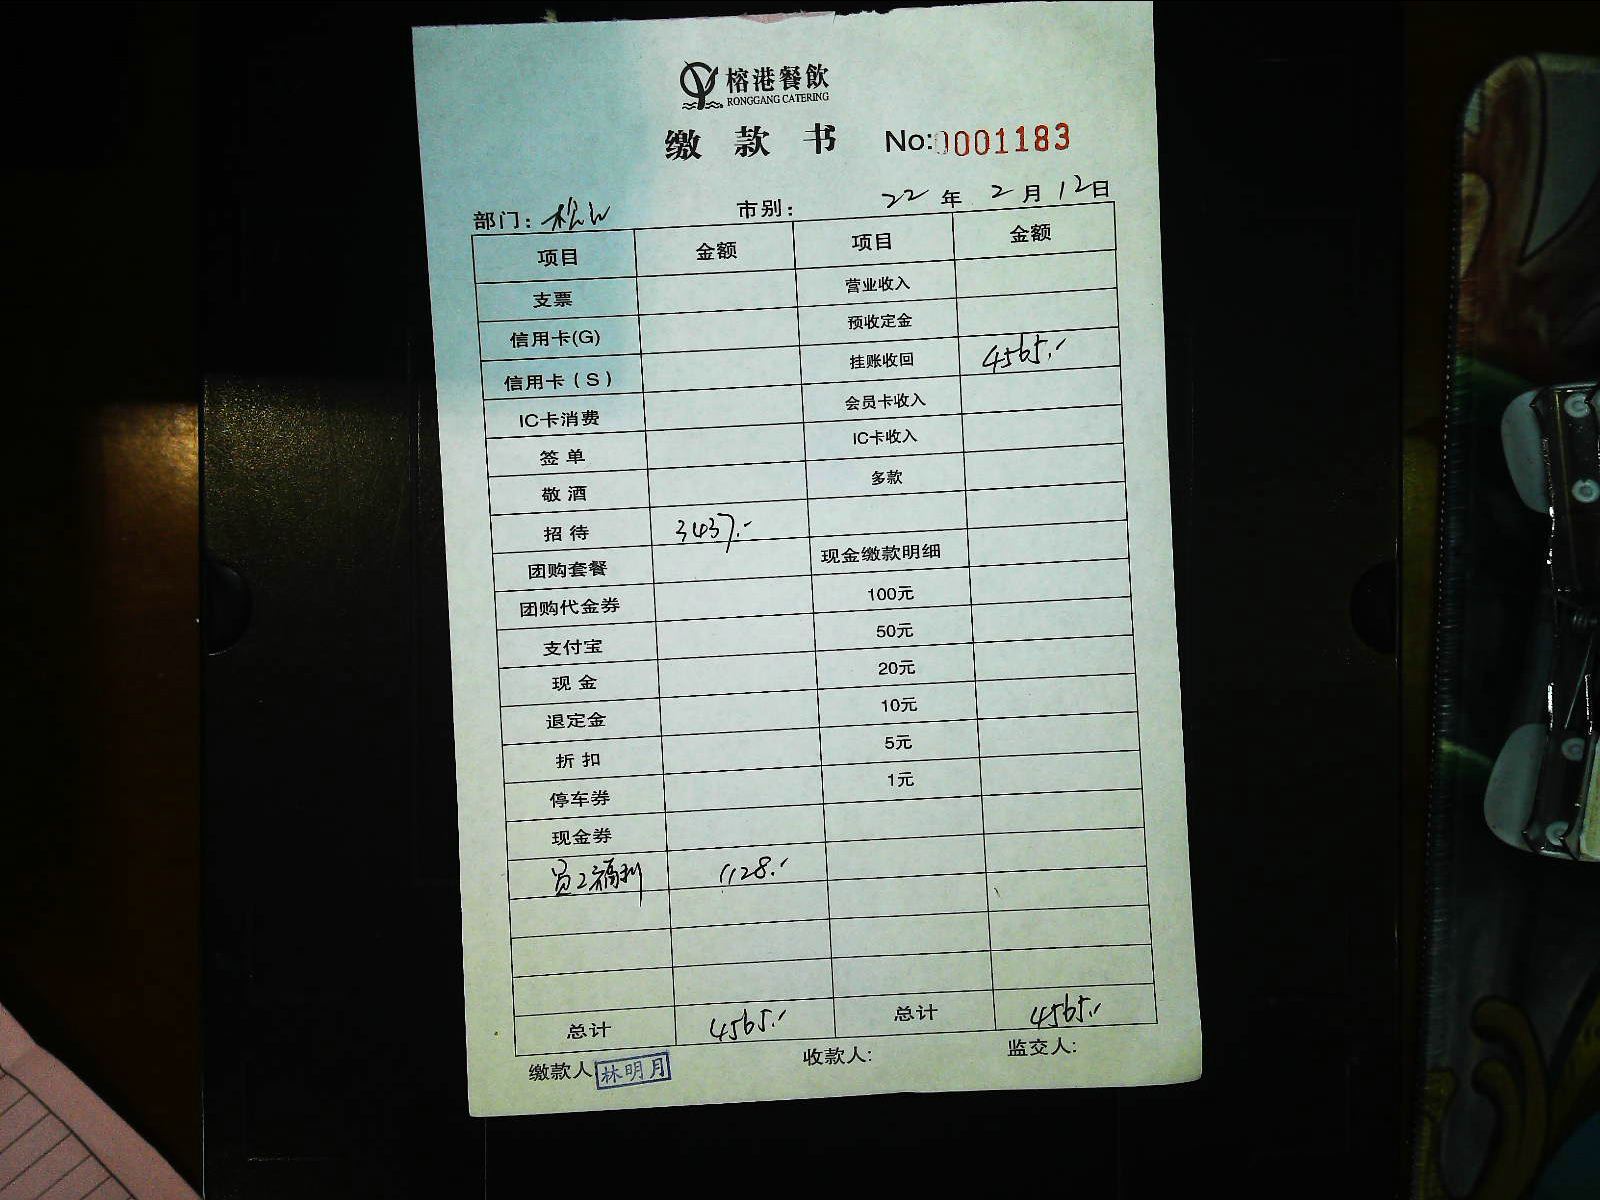 榕港餐飲
RONGGANG CATERING
缴款书 No:0001183
部门: 市别: 22年2月12日
项目 金额 项目 金额
支票 营业收入
信用卡(G) 预收定金
信用卡(S) 挂账收回 4565.-
IC卡消费 会员卡收入
签单 IC卡收入
敬酒 多款
招待 3437.-
团购套餐 现金缴款明细
团购代金券 100元
支付宝 50元
现金 20元
退定金 10元
折扣 5元
停车券 1元
现金券
员工福利 1128.-
总计 4565.- 总计 4565.-
缴款人 林明月 收款人: 监交人: